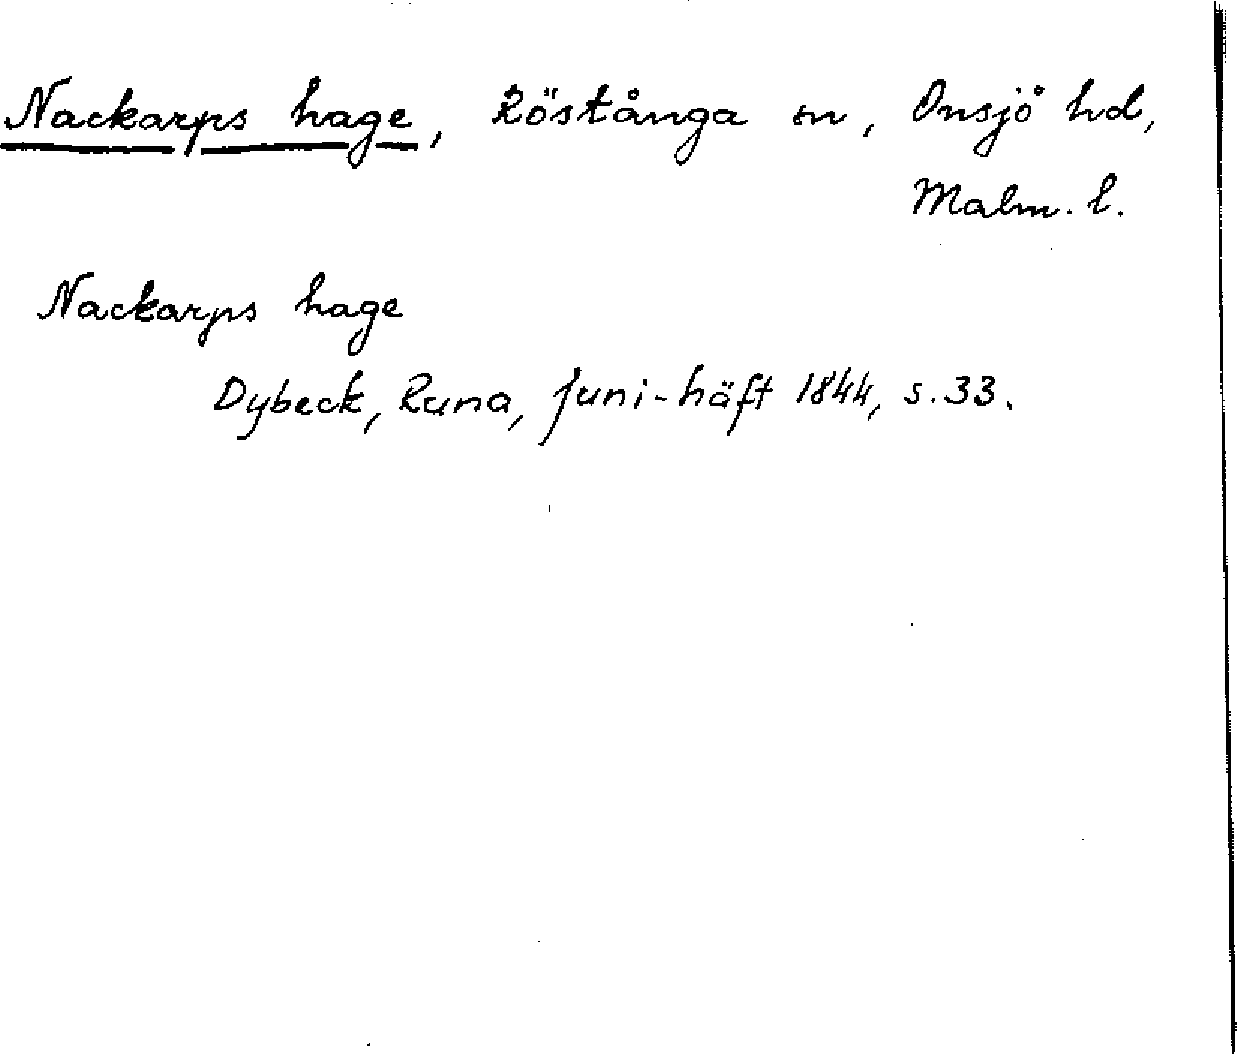 Nackarps hage, Röstånga sn, Onsjö hd,
Malm. l.
Nackarps hage
Dybeck, Runa, Juni-häft 1844, s. 33.